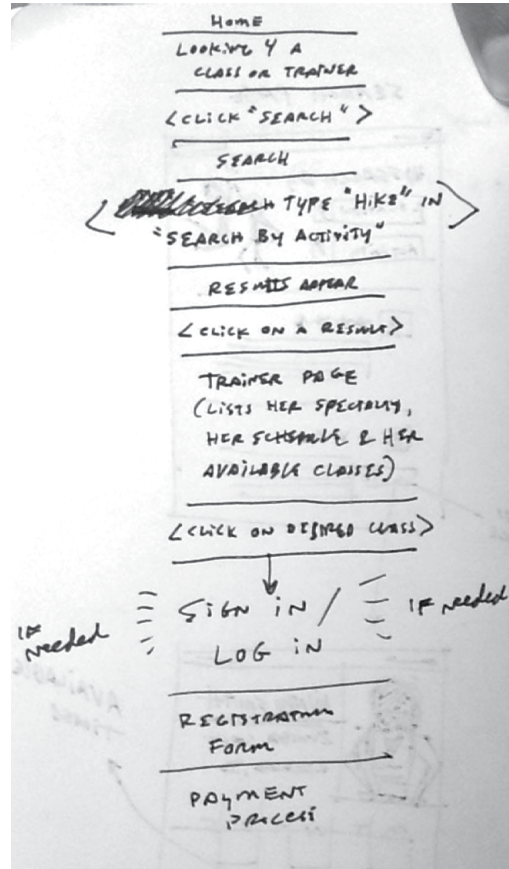 Home
LOOKING 4 A
CLASS OR TRAINER
<CLICK "SEARCH">
SEARCH
TYPE "HIKE" IN
"SEARCH BY ACTIVITY"
RESULTS APPEAR
<CLICK ON A RESULT>
TRAINER PAGE
(LISTS HER SPECIALTY,
HER SCHEDULE & HER
AVAILABLE CLASSES)
<CLICK ON DESIRED CLASS>
SIGN IN /
IF needed
IF needed
LOG IN
REGISTRATION
FORM
PAYMENT
PROCESS